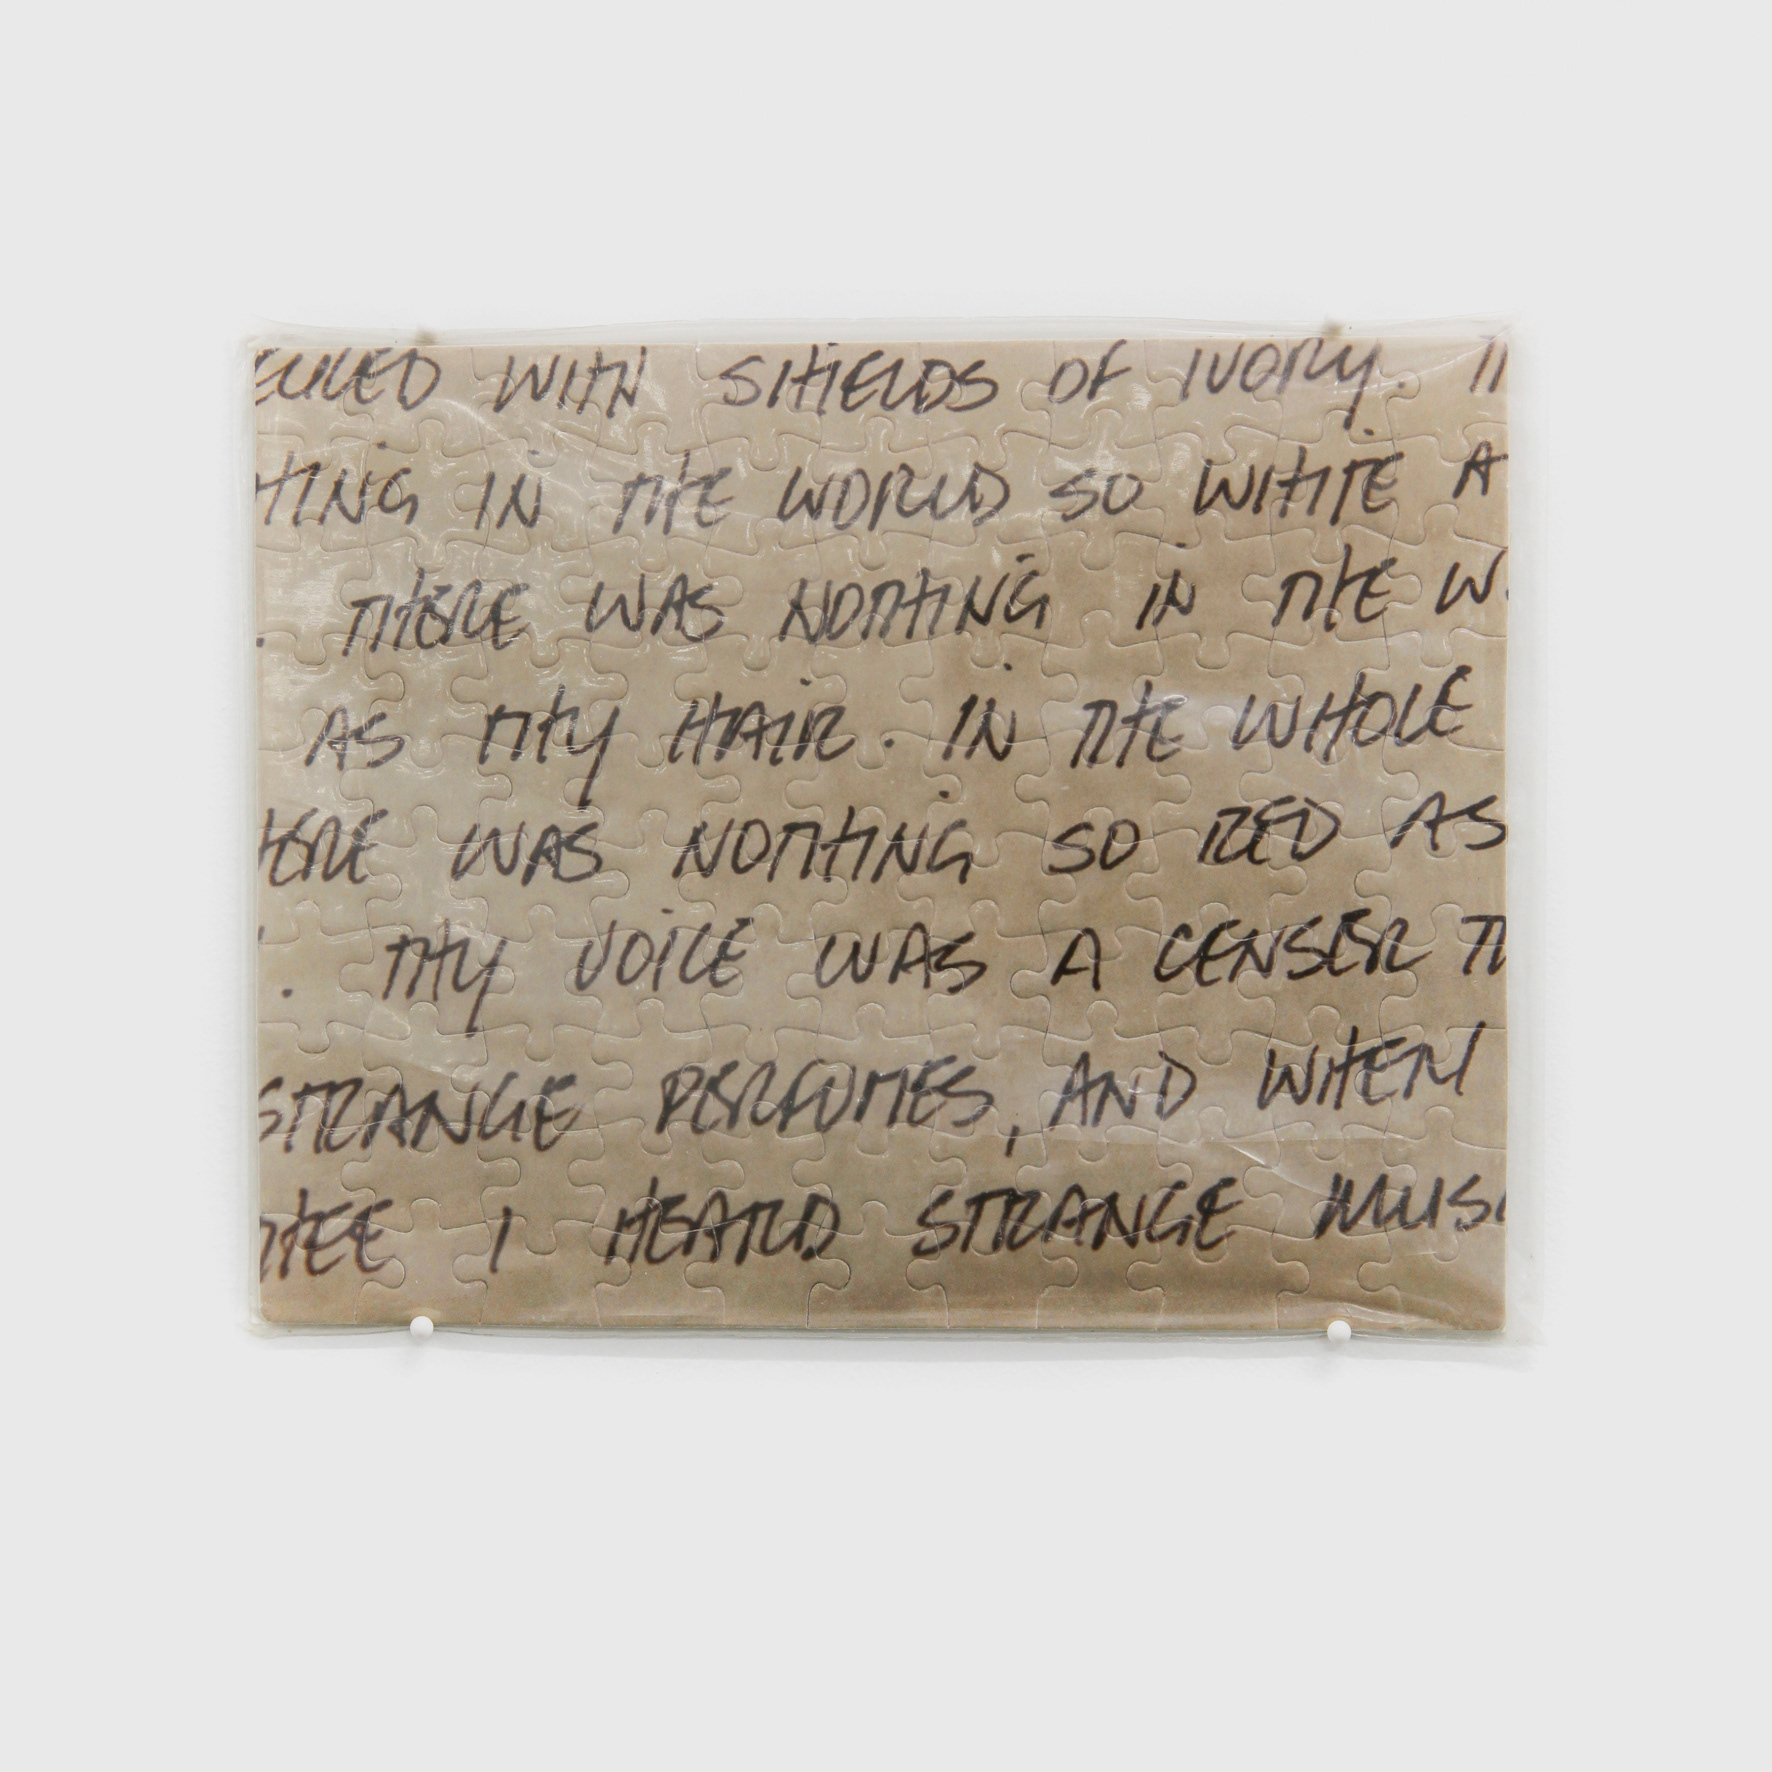 ECKED WITH SHIELDS OF IVORY. TH
THING IN THE WORLD SO WHITE A
. THERE WAS NOTHING IN THE W
AS THY HAIR. IN THE WHOLE
HERE WAS NOTHING SO RED AS
. THY VOICE WAS A CENSER TH
STRANGE PERFUMES, AND WHEN I
THEE I HEARD STRANGE MUSI